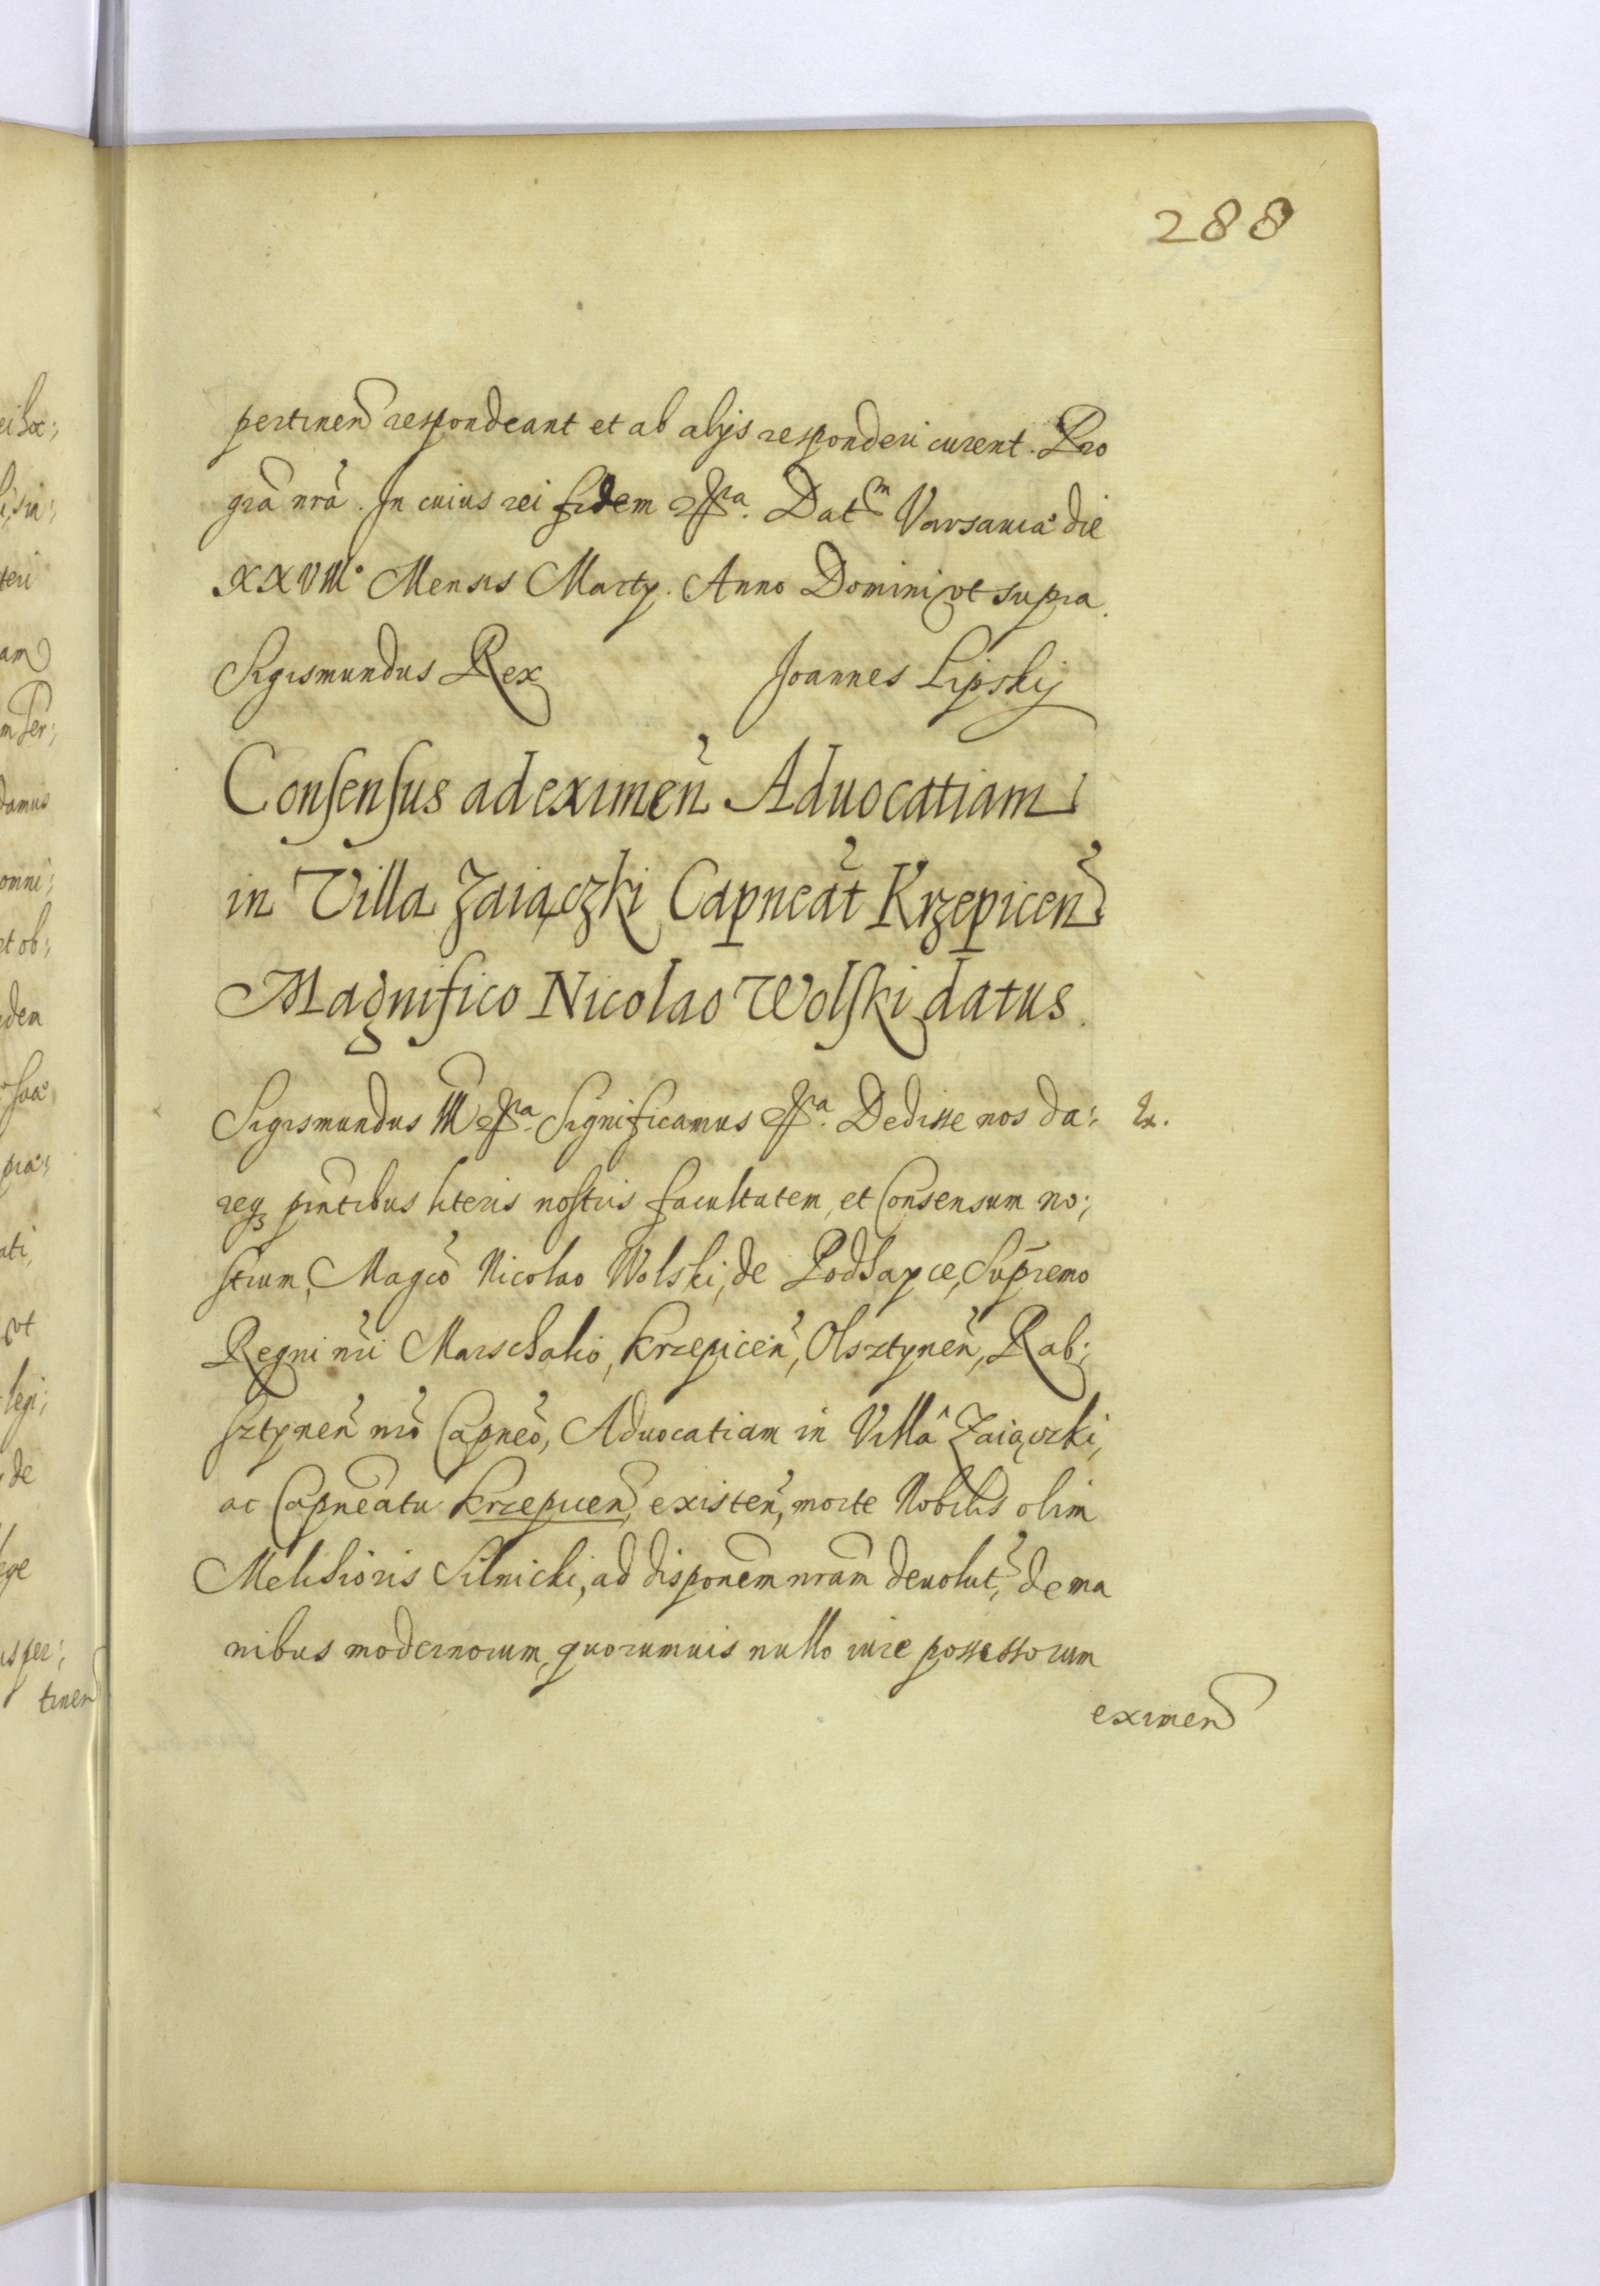 288
pertinen respondeant et ab alijs responderi curent. Pro
grã nrã. In cuius rei fidem &ra. Datm Varsauiæ die
XXVIIIo Mensis Martij. Anno Domini vt supra.
Sigismundus Rex Joannes Lipskij
Consensus ad eximen̄ Aduocatiam
in Villa Zaiączki Capneat̄ Krzepicen̄
Magnifico Nicolao Wolski datus.
Sigismundus III &ra. Significamus &ra. Dedisse nos da:
req3 pñtibus literis nostris facultatem, et Consensum no:
strum, Magco Nicolao Wolski, de Podhayce, Supremo
Regni nri Marschalio, Krzepicen̄, Olsztynen̄, Rab:
sztynen̄ nro Capneo, Aduocatiam in Villâ Zaiączki,
ac Capneatu Krzepicen, existen̄, morte Nobilis olim
Melchioris Silnicki, ad disponem nram deuolut̄, de ma
nibus modernorum, quorumuis nullo iure possessorum
eximen